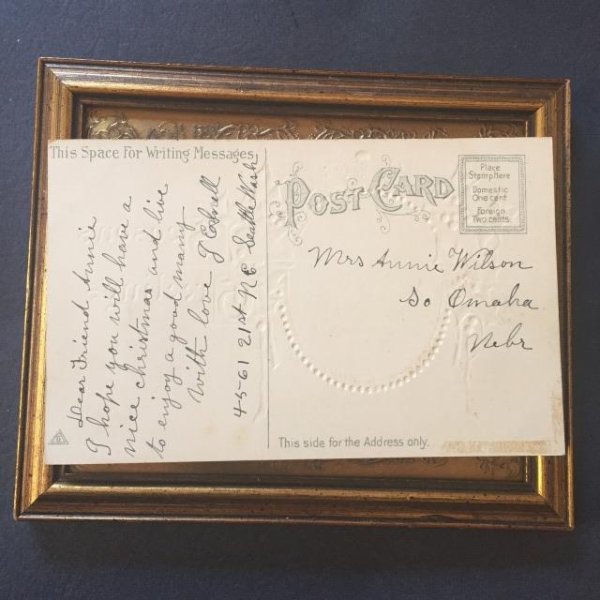 This Space For Writing Messages
Dear Friend Annie
I hope you will have a
nice christmas and live
to enjoy a good many
with love J
4561 21st N E Seattle Wash
POST CARD
Place
Stamp Here
Domestic
One cent
Foreign
Two cents
Mrs Annie Wilson
So Omaha
Nebr
This side for the Address only.